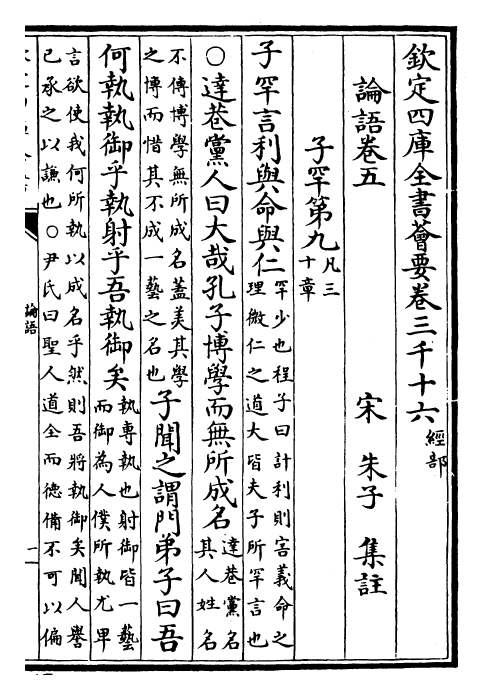 欽定四庫全書薈要卷三千十六 經部
論語卷五 宋 朱子 集註
子罕第九 凡三十章
子罕言利與命與仁 罕少也程子曰計利則害義命之理微仁之道大皆夫子所罕言也
○達巷黨人曰大哉孔子博學而無所成名 達巷黨名其人姓名
不傳博學無所成名蓋美其學之博而惜其不成一藝之名也 子聞之謂門弟子曰吾
何執執御乎執射乎吾執御矣 執專執也射御皆一藝而御為人僕所執尤卑
言欲使我何所執以成名乎然則吾將執御矣聞人譽
已承之以謙也○尹氏曰聖人道全而德備不可以偏
論語
一